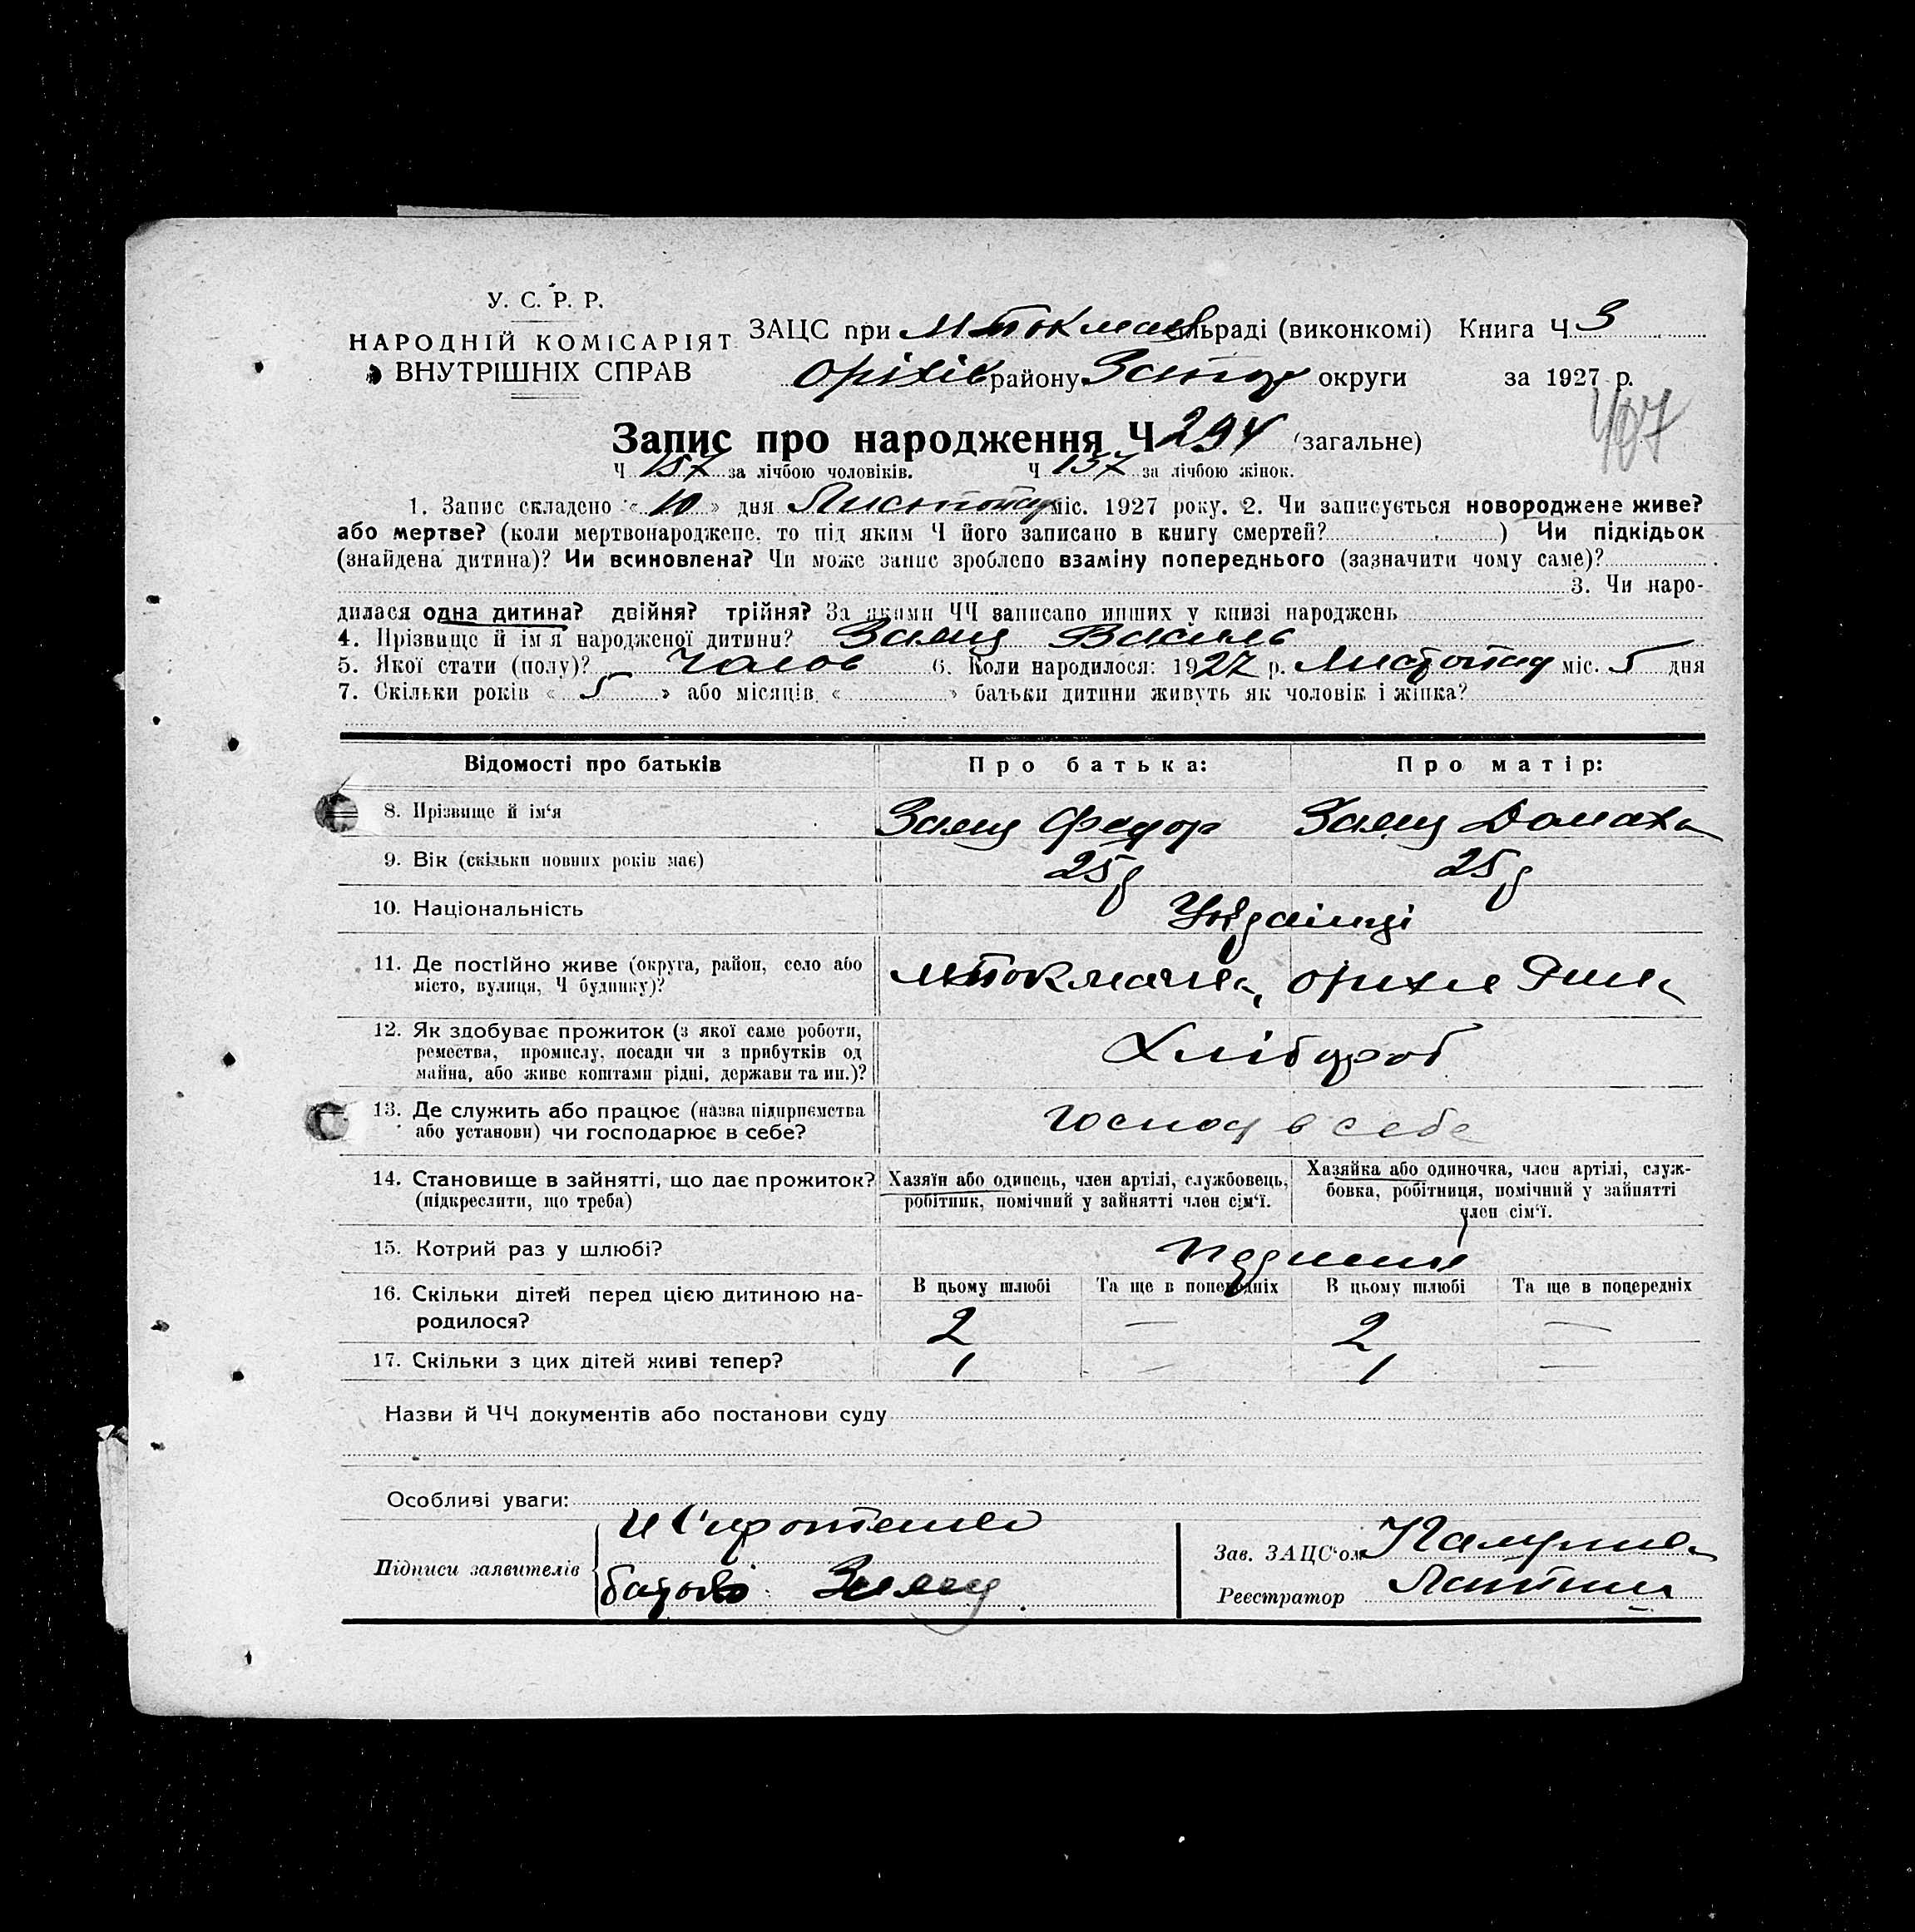 У. С. Р. Р.
НАРОДНІЙ КОМІСАРІЯТ
ВНУТРІШНІХ СПРАВ
ЗАЦС при М Токмач сільраді (виконкомі) Книга Ч 3
Оріхів району Запор округи за 1927 р.
497
Запис про народження Ч 294 (загальне)
Ч 157 за лічбою чоловіків. Ч 137 за лічбою жінок.
1. Запис складено « 10 » дня Листопад міс. 1927 року. 2. Чи записується новороджене живе?
або мертве? (коли мертвонароджене, то під яким Ч його записано в книгу смертей? ) Чи підкідьок
(знайдена дитина)? Чи всиновлена? Чи може запис зроблено взаміну попереднього (зазначити чому саме)?
3. Чи наро-
дилася одна дитина? двійня? трійня? За якими ЧЧ записано инших у книзі народжень
4. Прізвище й ім'я народженої дитини? Заяц Василь
5. Якої стати (полу)? чолов 6. Коли народилося: 1927 р. Листопад міс. 5 дня
7. Скільки років « 5 » або місяців « » батьки дитини живуть як чоловік і жінка?
Відомості про батьків Про батька: Про матір:
8. Прізвище й ім'я Заяц Федор Заяц Домаха
9. Вік (скільки повних років має) 25 р 25 р
10. Національність Українці
11. Де постійно живе (округа, район, село або
місто, вулиця, Ч будинку)? М Токмачка,
12. Як здобуває прожиток (з якої саме роботи,
ремества, промислу, посади чи з прибутків од
майна, або живе коштами рідні, держави та ин.)? Хлібороб
13. Де служить або працює (назва підприємства
або установи) чи господарює в себе? господ в себе
14. Становище в зайнятті, що дає прожиток?
(підкреслити, що треба)
Хазяїн або одинець, член артілі, службовець,
робітник, помічний у зайнятті член сім'ї.
Хазяйка або одиночка, член артілі, служ-
бовка, робітниця, помічний у зайнятті
член сім'ї.
15. Котрий раз у шлюбі?
В цьому шлюбі Та ще в попередніх В цьому шлюбі Та ще в попередніх
16. Скільки дітей перед цією дитиною на-
родилося? 2 — 2 —
17. Скільки з цих дітей живі тепер? 1 — 1 —
Назви й ЧЧ документів або постанови суду
Особливі уваги:
Підписи заявителів
Заяц
Зав. ЗАЦС'ом
Реєстратор